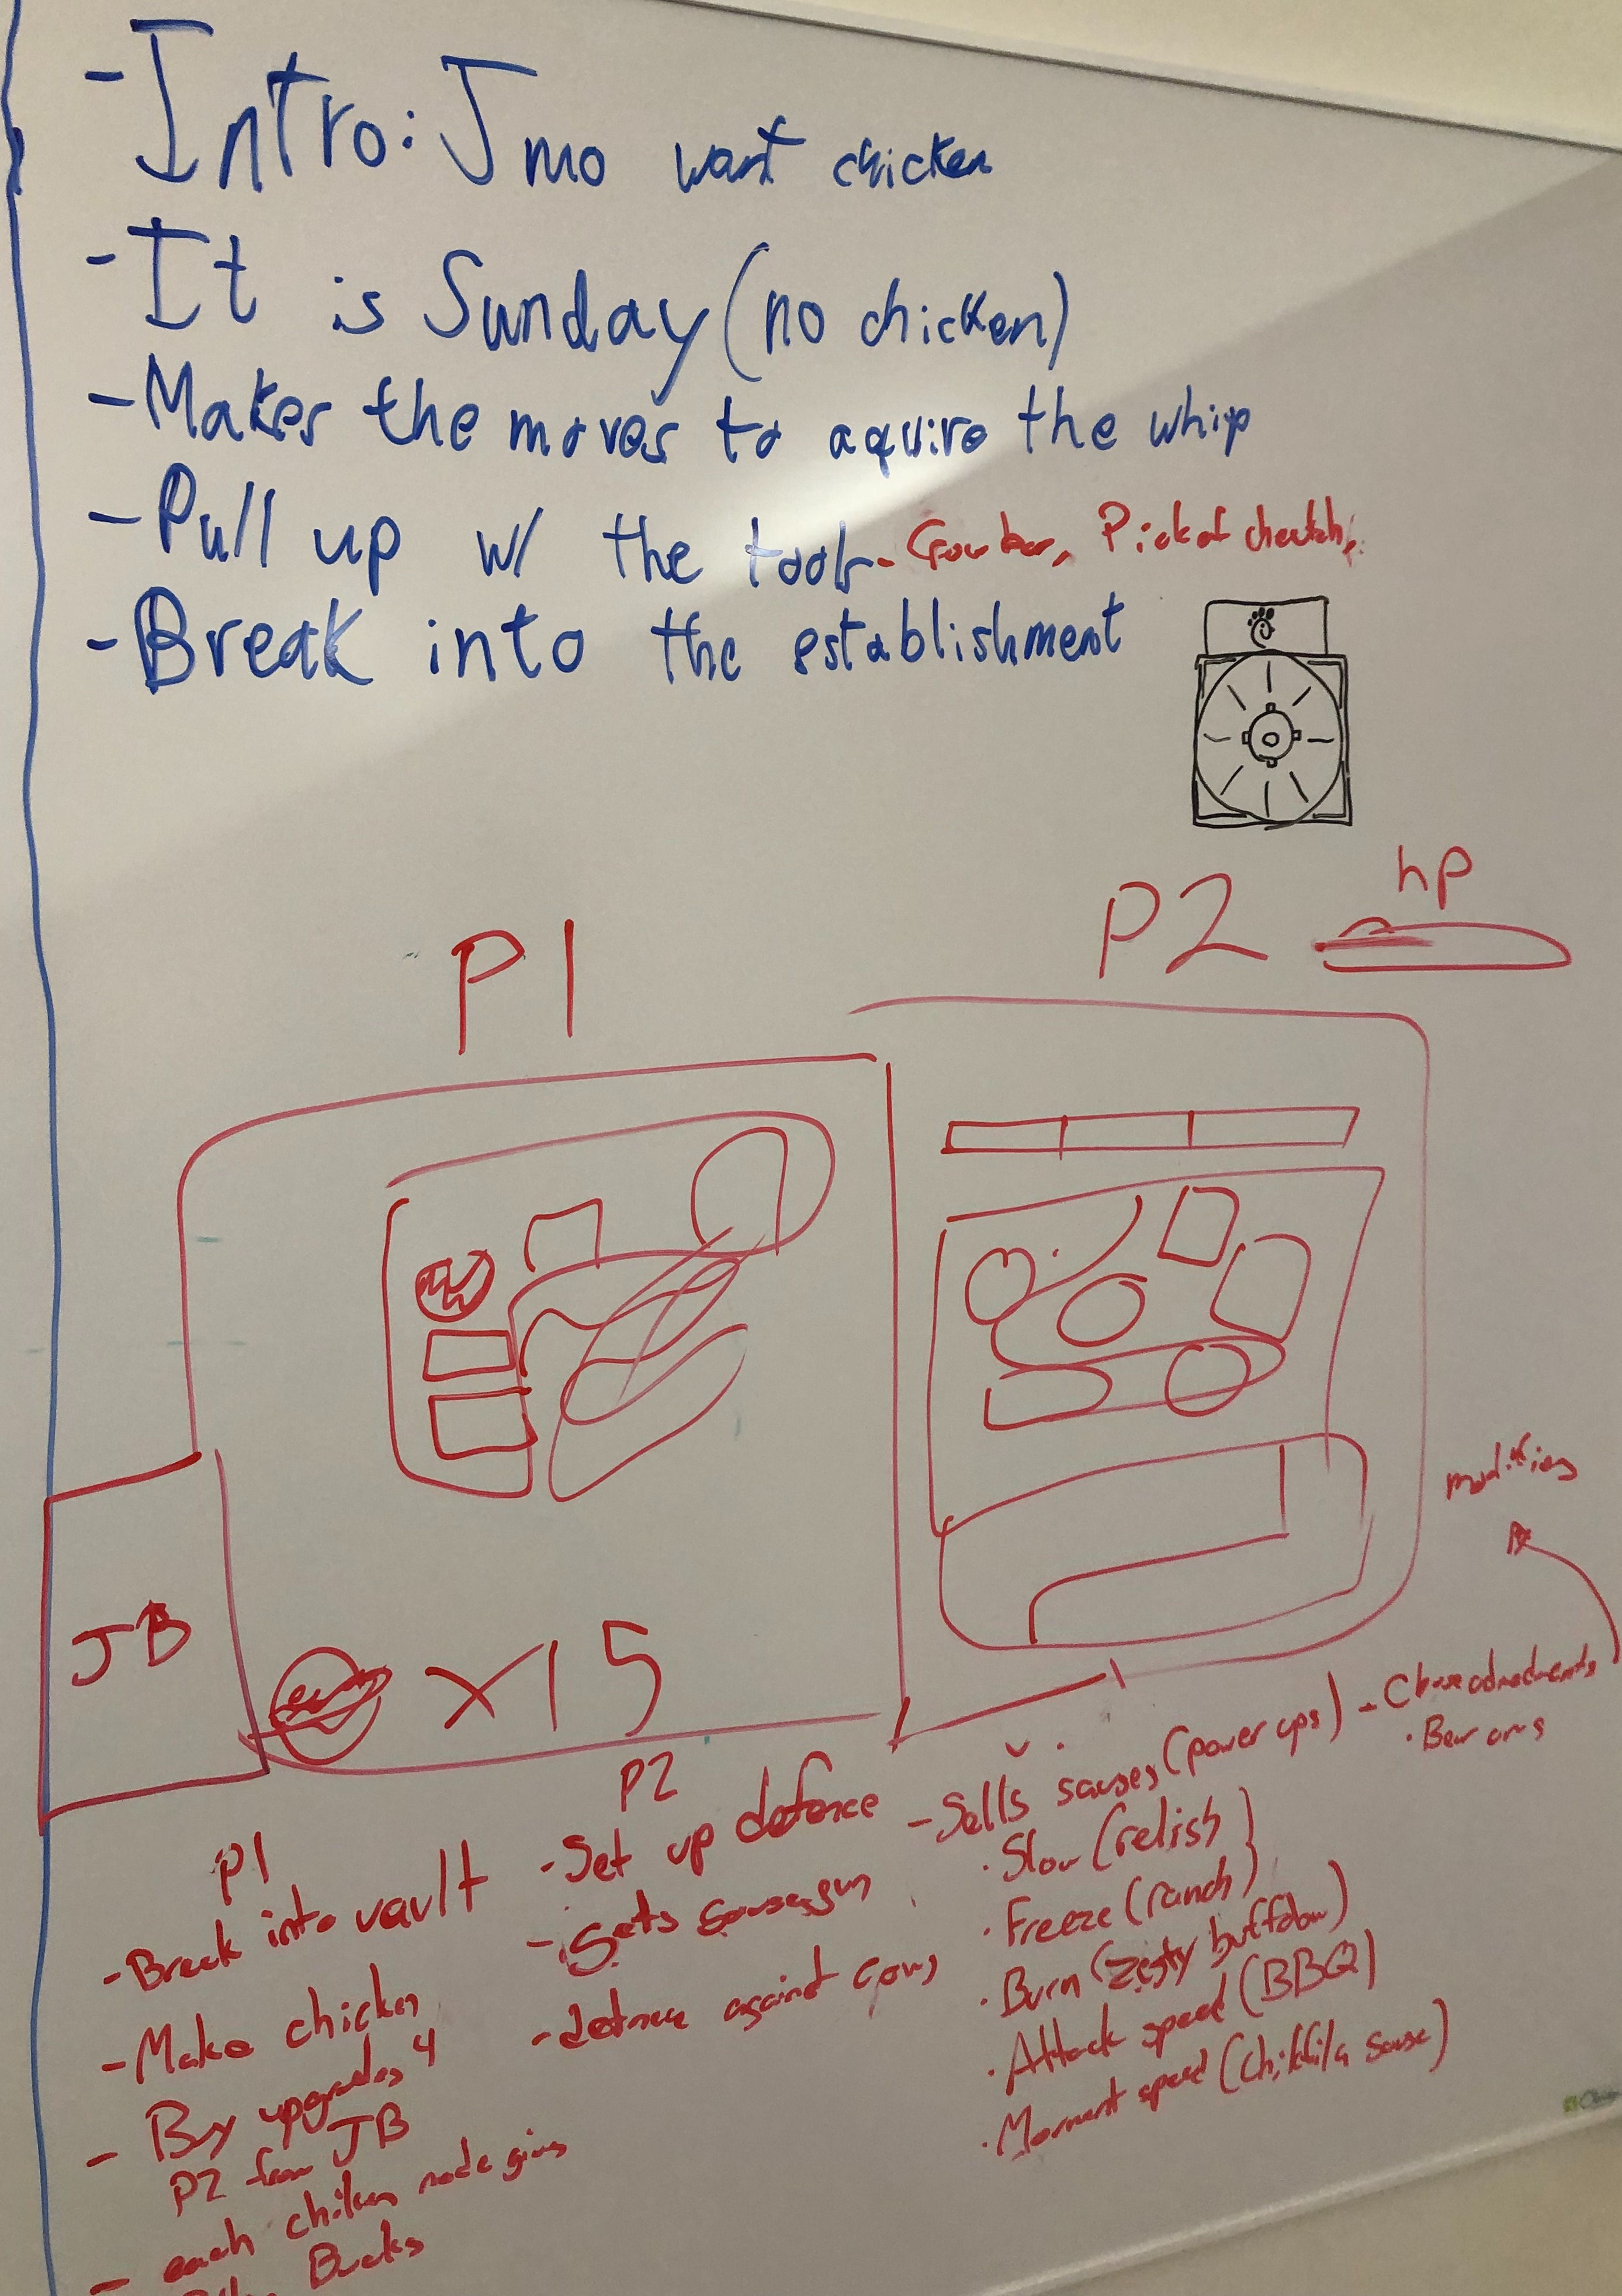 - Intro: Jmo want chicken
- It is Sunday (no chicken)
- Makes the moves to aquire the whip
- Pull up w/ the tools -
- Break into the establishment
P1
P2
hp
JB
x15
P1
- Break into vault
- Make chicken
- Buy upgrades 4
P2 from JB
- each chiken made gives
Bucks
P2
- Set up defence
- Sets
- defence against cows
- Sells sauses (power ups)
· Slow (relish)
· Freeze (ranch)
· Burn (zesty buffalow)
· Attack speed (BBQ)
speed (Chikfila Sause)